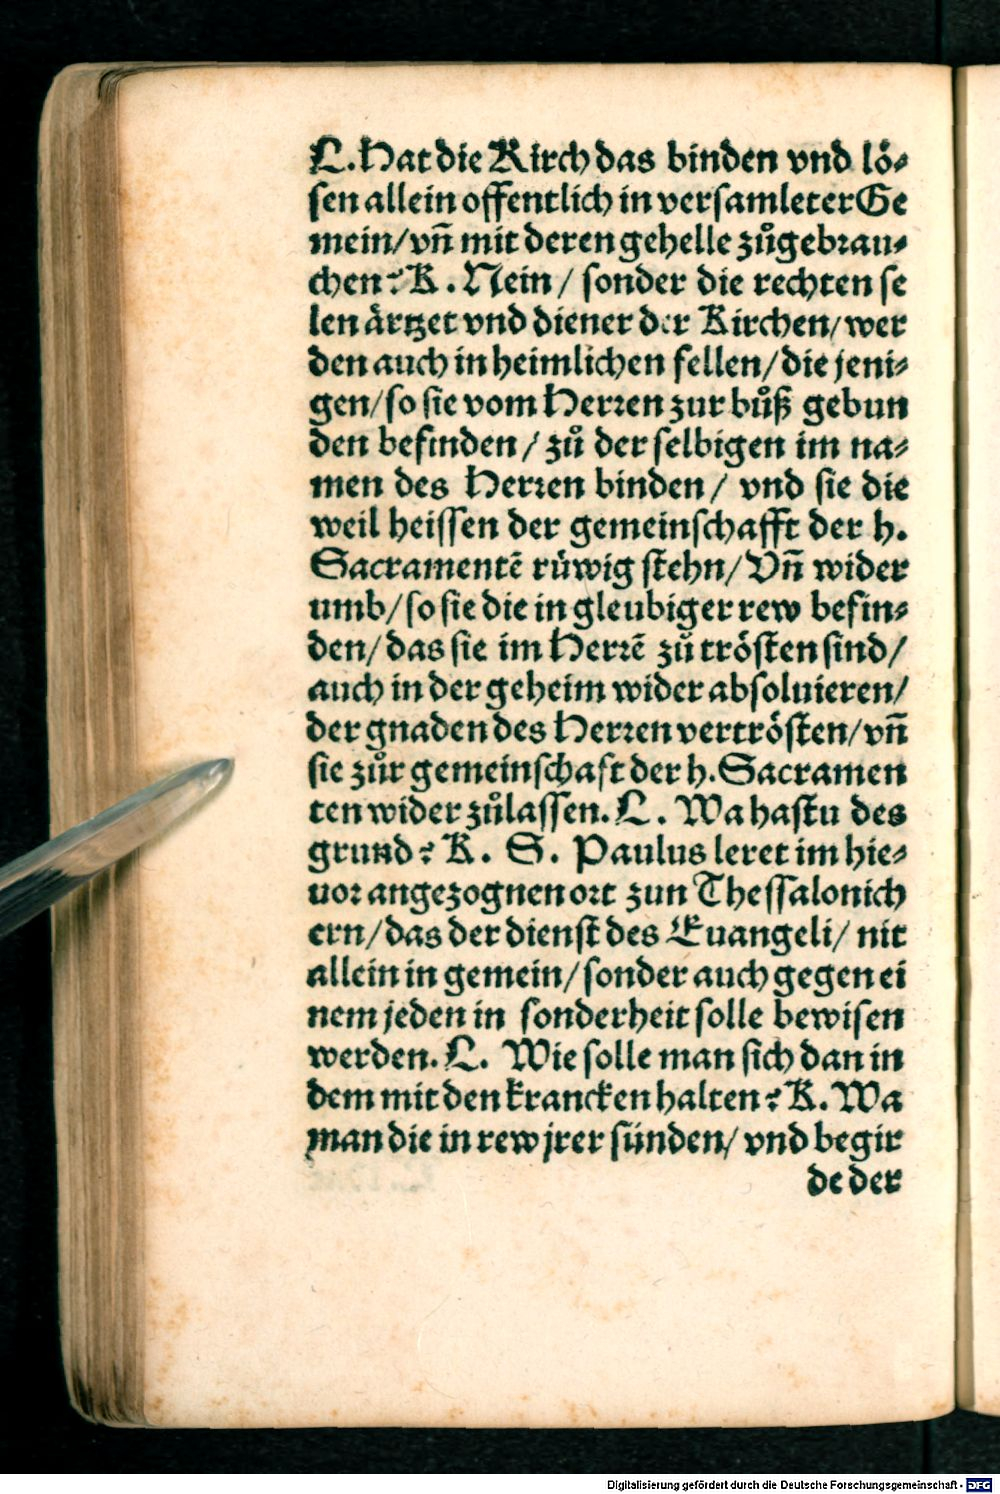 L. Hat die Kirch das binden vnd lö⸗
sen allein offentlich in versamleter Ge
mein/ vñ mit deren gehelle zůgebrau⸗
chen? K. Nein/ sonder die rechten se
len ärtzet vnd diener der Kirchen/ wer
den auch in heimlichen fellen/ die jeni⸗
gen/ so sie vom Herren zur bůß gebun
den befinden/ zů der selbigen im na⸗
men des Herren binden/ vnd sie die
weil heissen der gemeinschafft der h.
Sacramentẽ rüwig stehn/ Vñ wider
umb/ so sie die in gleubiger rew befin⸗
den/ das sie im Herrẽ zů trösten sind/
auch in der geheim wider absoluieren/
der gnaden des Herren vertrösten/ vñ
sie zůr gemeinschaft der h. Sacramen
ten wider zůlassen. L. Wa hastu des
grund? K. S. Paulus leret im hie⸗
uor angezognen ort zun Thessalonich
ern/ das der dienst des Euangeli/ nit
allein in gemein/ sonder auch gegen ei
nem jeden in sonderheit solle bewisen
werden. L. Wie solle man sich dan in
dem mit den krancken halten? K. Wa
man die in rew jrer sünden/ vnd begir
de der
Digitalisierung gefördert durch die Deutsche Forschungsgemeinschaft - DFG